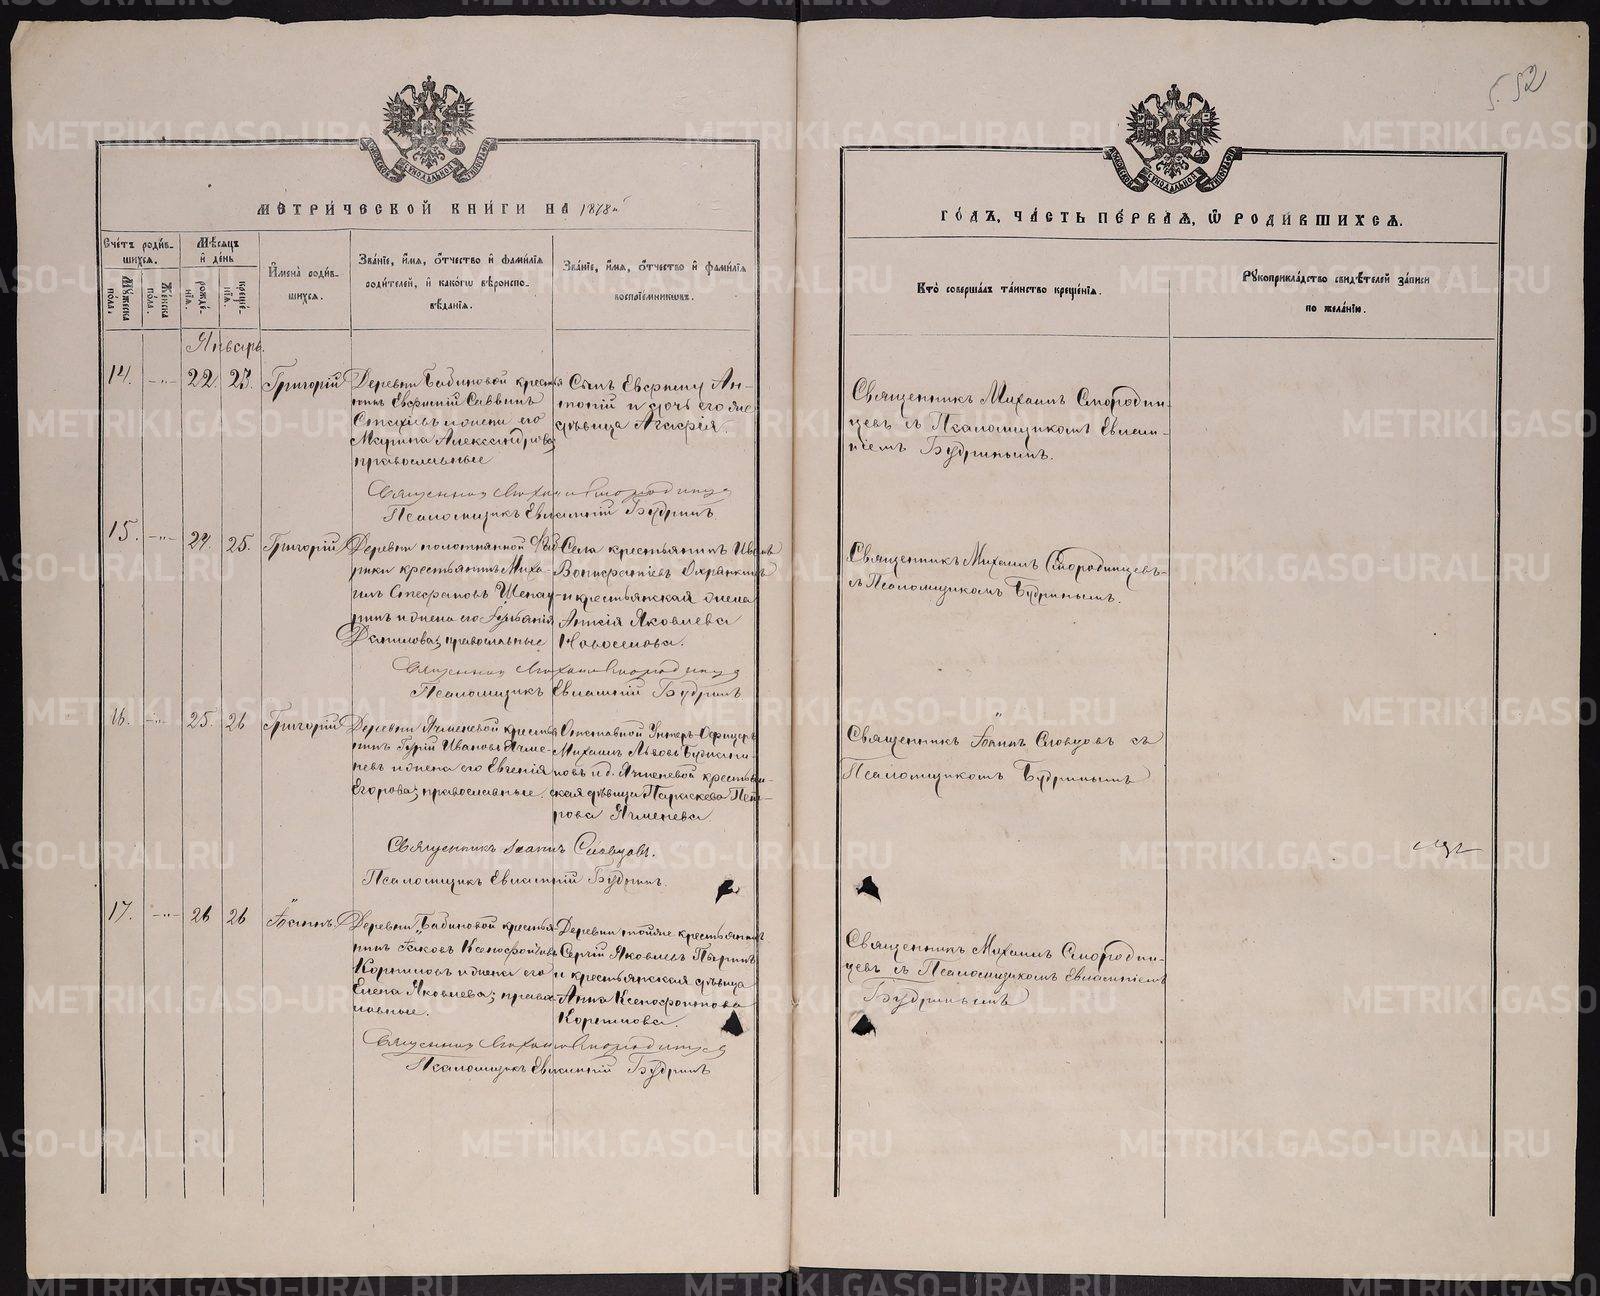 МЕТРИЧЕСКОЙ КНИГИ НА 1878й
ГОДЪ, ЧАСТЬ ПЕРВАЯ, Ѡ РОДИВШИХСЯ.
52
Счетъ родив-
шихся.
Мужеска пола.
Женска пола.
Мѣсяцъ и день
рожде-
нія.
креще-
нія.
Имена родив-
шихся.
Званіе, имя, отчество и фамилія
родителей, и какогѡ вѣроиспо-
вѣданія.
Званіе, имя, отчество и фамилія
воспріемникѡвъ.
Кто совершалъ таинство крещенія.
Рукоприкладство свидѣтелей записи
по желанію.
Январь.
14. —"— 22. 23. Григорій
Деревни Бабиновой кресть
янинъ Евфимій Саввинъ
и жена его
Марина Александрова,
православные
Сынъ Евфиму Ан-
тоній и дочь его же
дѣвица Агафія.
Священникъ Михаилъ Смородин-
цевъ съ Псаломщикомъ Евлам-
піемъ Будринымъ.
Священникъ Михаилъ Смородинцевъ
Псаломщикъ Евлампій Будринъ.
15. —"— 24. 25. Григорій
Деревни полотнянной Фаб-
рики крестьянинъ Миха-
илъ Стефановъ
и жена его
Данилова, православные
Села крестьянинъ Иванъ
Вонифатіевъ
и крестьянская жена
Анисія Яковлева
Новоселова.
Священникъ Михаилъ Смородинцевъ
съ Псаломщикомъ Будринымъ.
Священникъ Михаилъ Смородинцевъ
Псаломщикъ Евлампій Будринъ
16. —"— 25. 26 Григорій
Деревни Ячменевой кресть
янинъ Гурій Ивановъ Ячме-
невъ и жена его Евгенія
Егорова, православные.
Отставной Унтеръ-Офицеръ
Михаилъ Львовъ
и д. Ячменевой крестьян-
ская дѣвица Параскева Пет-
рова Ячменева.
Священникъ Іоаннъ Словцовъ съ
Псаломщикомъ Будринымъ
Священникъ Іоаннъ Словцовъ.
Псаломщикъ Евлампій Будринъ.
17. —"— 26 26 Іоаннъ
Деревни Бабиновой крестья-
нинъ Іаковъ Ксенофонтовъ
Корниловъ и жена его
Елена Яковлева; право-
славные.
Деревни тойже крестьянинъ
Сергій Яковлевъ
и крестьянская дѣвица
Анна Ксенофонтова
Корнилова.
Священникъ Михаилъ Смородин-
цевъ съ Псаломщикомъ Евлампіемъ
Будринымъ
Священникъ Михаилъ Смородинцевъ
Псаломщикъ Евлампій Будринъ
METRIKI.GASO-URAL.RU